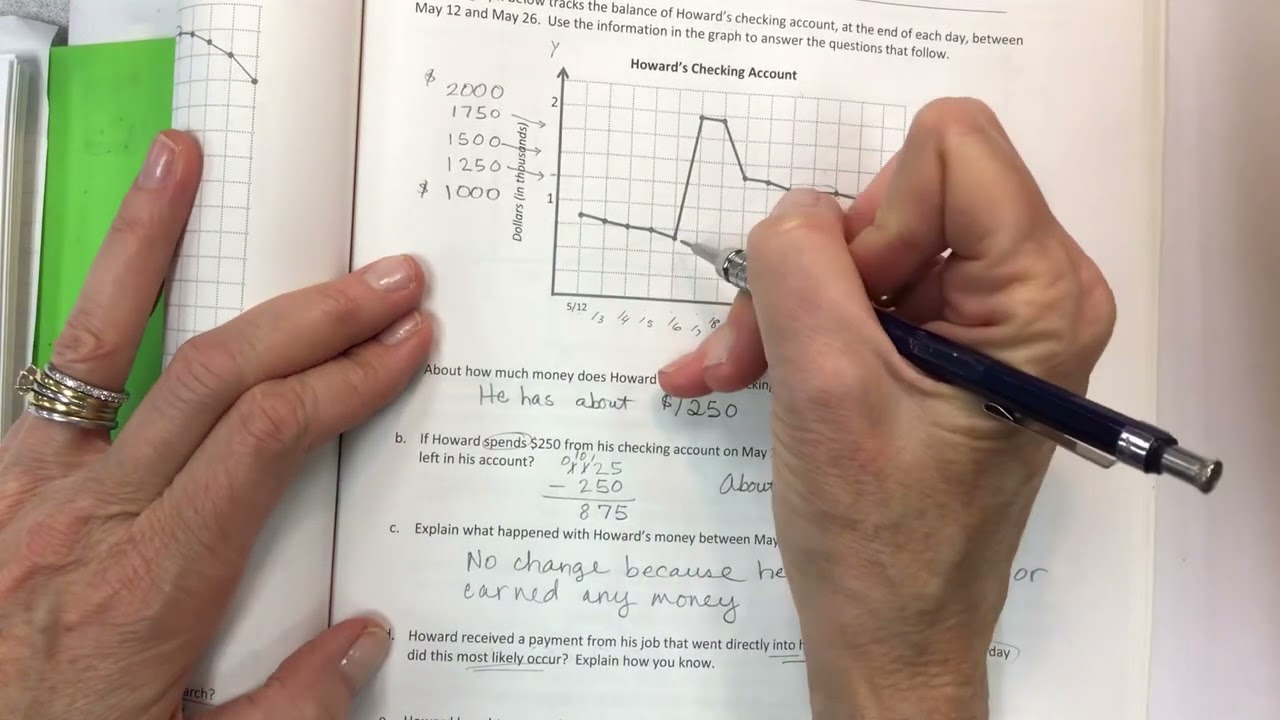 tracks the balance of Howard's checking account, at the end of each day, between
May 12 and May 26. Use the information in the graph to answer the questions that follow.
Y
Howard's Checking Account
$ 2000
1750
1500
1250
$ 1000
Dollars (in thousands)
2
1
5/12 13 14 15 16 17 18
About how much money does Howard
He has about $1250
b. If Howard spends $250 from his checking account on May
left in his account?
25
- 250
875
About
c. Explain what happened with Howard's money between May
No change because he or
earned any money
Howard received a payment from his job that went directly into
day
did this most likely occur? Explain how you know.
arch?